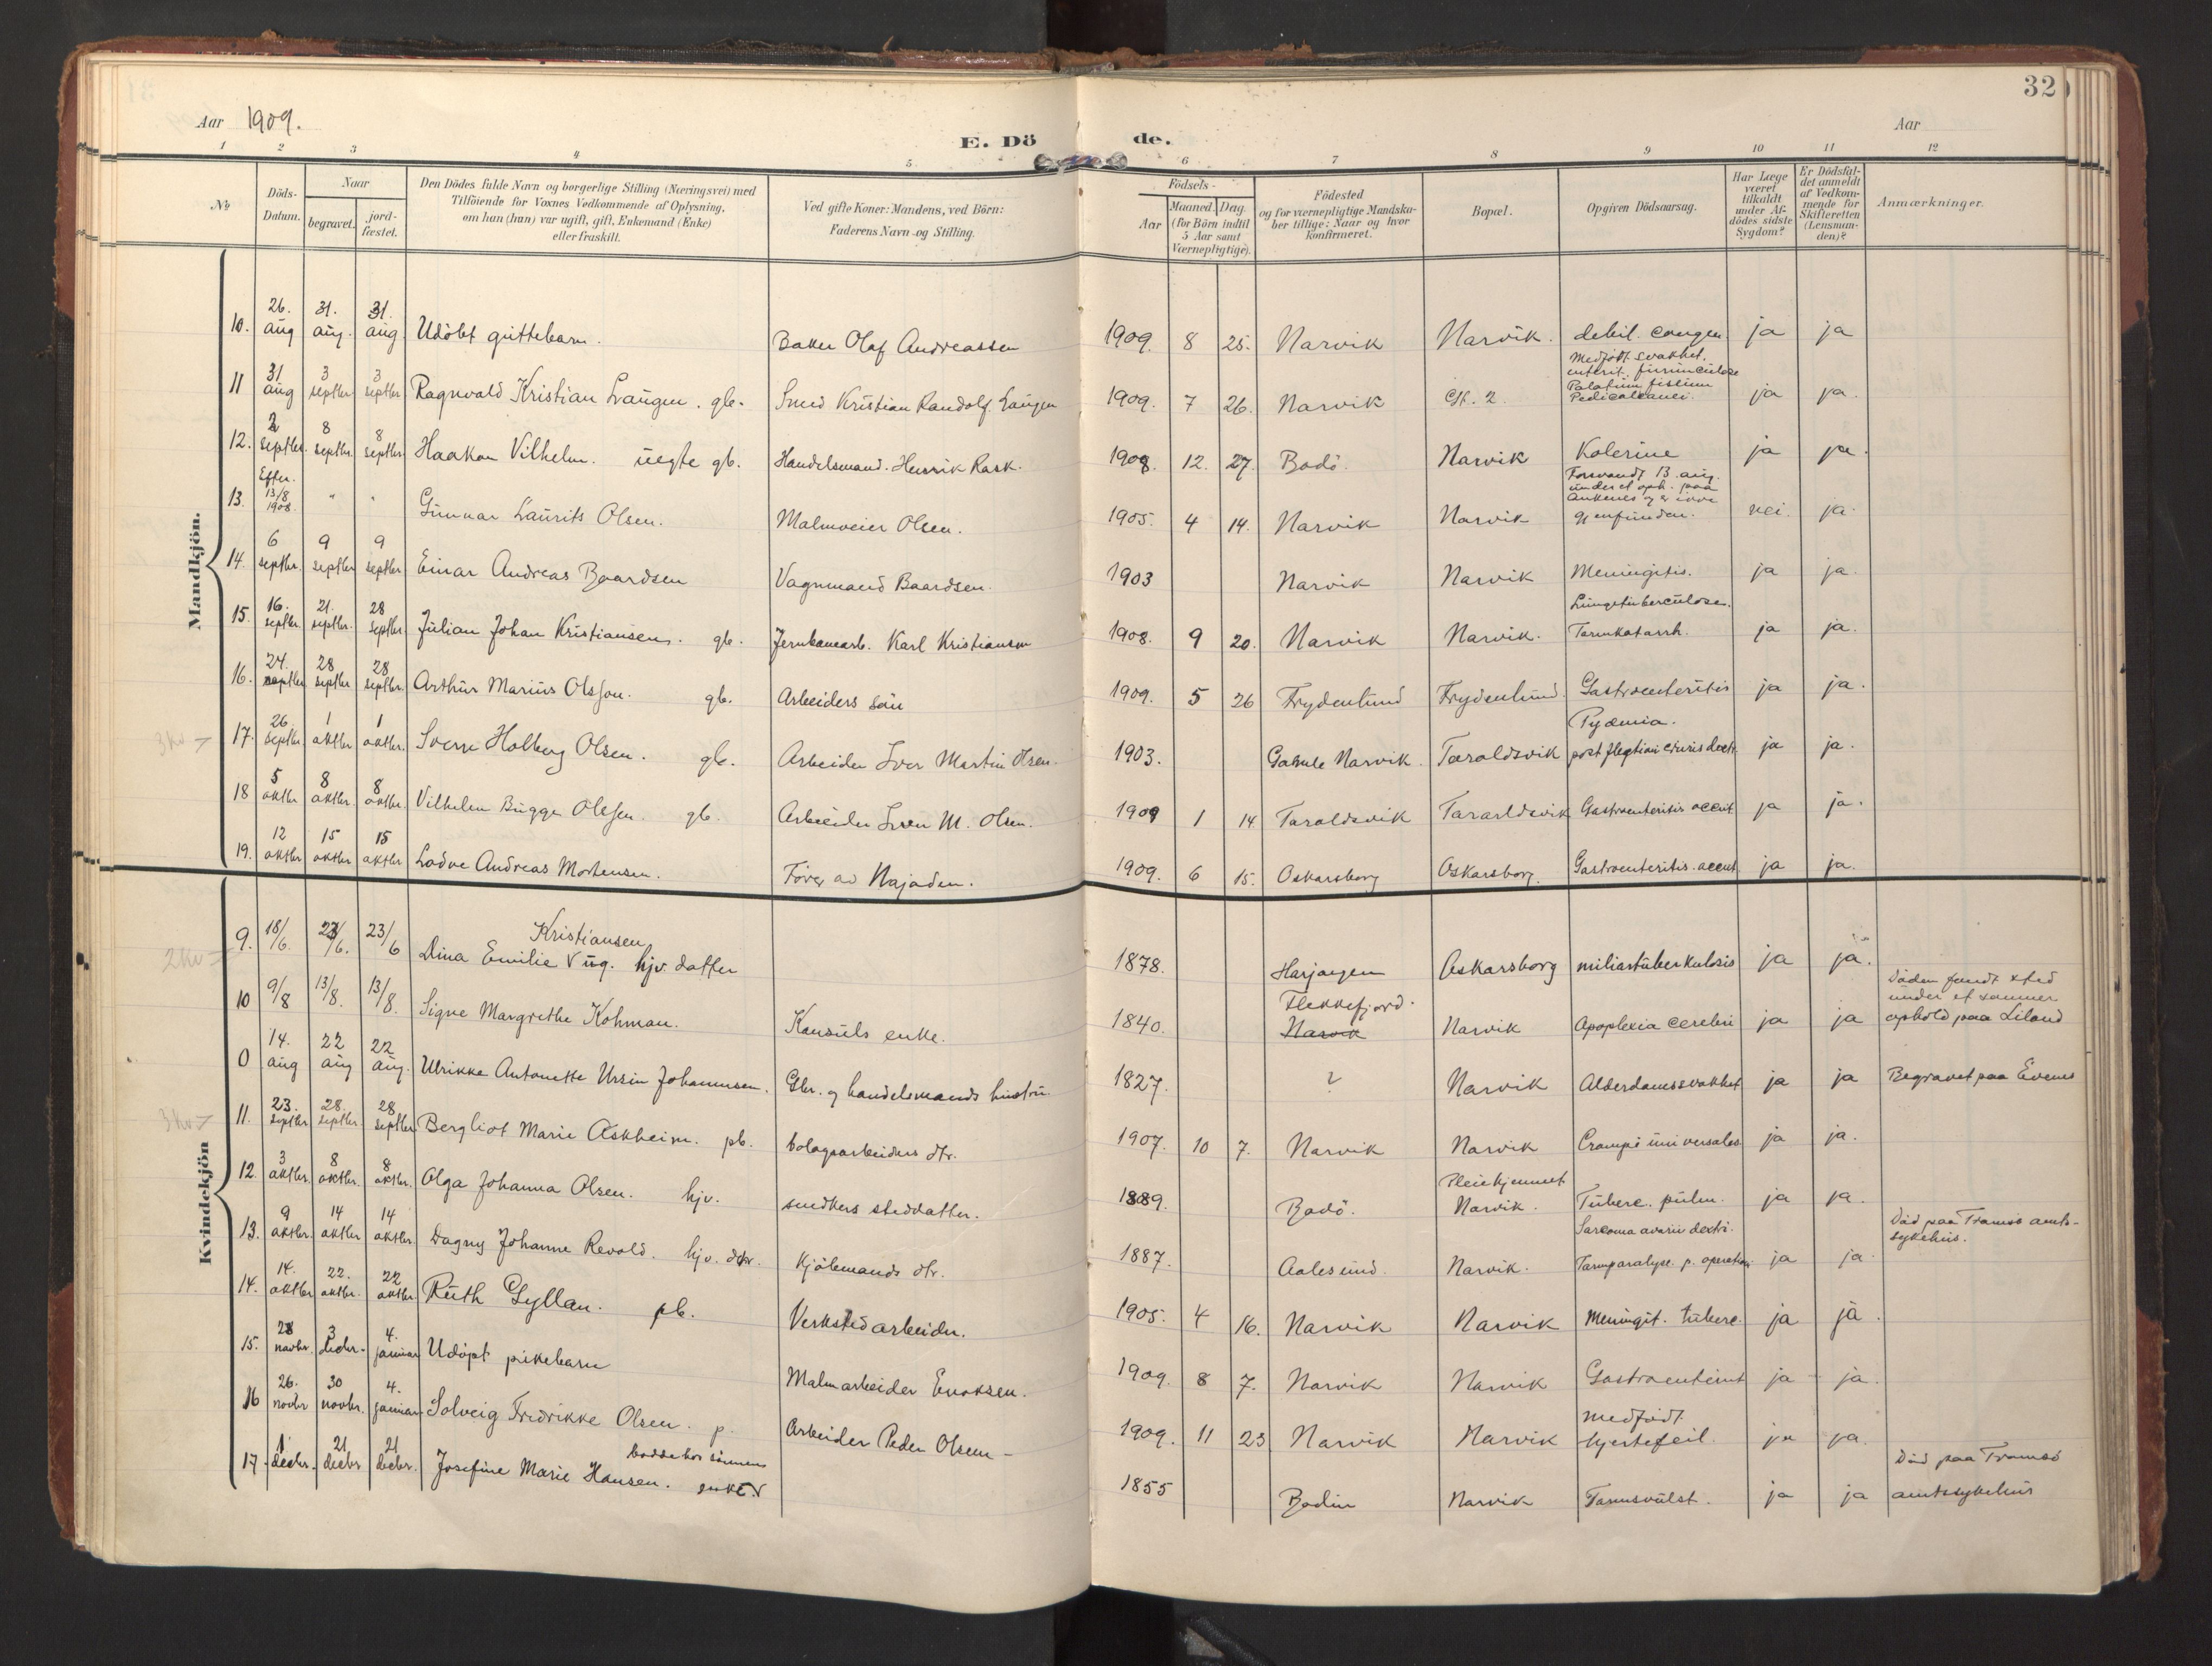 32
Aar 1909.
Aar
E. Dö de.
1 2 3 4 5 6 7 8 9 10 11 12
No
Döds-Datum.
Naar
begravet.
jord-fæstet.
Den Dödes fulde Navn og borgerlige Stilling (Næringsvei) med
Tilföiende for Voxnes Vedkommende af Oplysning,
om han (hun) var ugift, gift, Enkemand (Enke)
eller fraskilt.
Ved gifte Koner: Mandens, ved Börn:
Faderens Navn og Stilling.
Födsels-
Aar
Maaned. Dag.
(for Börn indtil
5 Aar samt
Værnepligtige).
Födested
og for værnepligtige Mandska-
ber tillige: Naar og hvor
konfirmeret.
Bopæl.
Opgiven Dödsaarsag.
Har Læge
været
tilkaldt
under Af-
dödes sidste
Sygdom?
Er Dödsfal-
det anmeldt
af Vedkom-
mende for
Skifteretten
(Lensman-
den)?
Anmærkninger.
Mandkjön.
10. 26. aug 31. aug. 31. aug. Udöbt guttebarn. Baker Olaf Andreassen 1909. 8 25. Narvik Narvik. debil. congen. ja ja
Medfödt svakhet.
11 31 aug 3 septbr. 3 septbr. Ragnvald Kristian Langen. gb. Smed Kristian Randolf Langen 1909. 7 26. Narvik enterit. furunculose Palatum fissum ja ja.
12. 2 septbr. 8 septbr. 8 septbr. Haakon Vilhelm. uegte gb. Handelsmand Henrik Rask. 1908. 12. 27. Bodö. Narvik Kolerine ja ja.
13. Efter. 13/8 1908. " " Gunnar Laurits Olsen. Malmveier Olsen. 1905. 4 14. Narvik Narvik Forsvandt 13. aug. under et oph. paa Ankenes og er ikke gjenfunden. nei. ja.
14. 6 septbr. 9 septbr 9 septbr Einar Andreas Baardsen Vagnmand Baardsen. 1903 Narvik Narvik Meningitis. ja ja.
15. 16. septbr. 21. septbr. 28 septbr. Julian Johan Kristiansen. gb. Jernbanearb. Karl Kristiansen 1908. 9 20. Narvik Narvik. Lungetuberculose. Tarmkatarrh. ja ja.
16. 24. septbr 28 septbr 28 septbr. Arthur Marius Olsson. gb. Arbeiders sön 1909. 5 26 Frydenlund Frydenlund. Gastroenteritis ja ja.
3 kv
17. 26. septbr. 1 oktbr 1 oktbr. Sverre Holberg Olsen. gb. Arbeider Iver Martin Olsen. 1903. Gamle Narvik. Taraldsvik Pyæmia. ja ja.
18 5 oktbr 8 oktbr. 8 oktbr. Vilhelm Bugge Olsen. gb. Arbeider Iver M. Olsen. 1909 1 14 Taraldsvik Tararldsvik Gastroenteritis accut ja ja.
19. 12 oktbr 15 oktbr 15 oktbr Lodve Andreas Mortensen. Förer av Najaden. 1909. 6 15. Oskarsborg Oskarsborg. Gastroenteritis accut. ja ja.
Kvindekjön
2 kv
9. 18/6. 23/6. 23/6 Kristiansen
Dina Emilie V ug. hjv. datter 1878. Harjangen Oskarsborg miliartuberkulosis ja ja.
10 9/8 13/8. 13/8. Signe Margrethe Kohman. Konsuls enke. 1840. Flekkefjord. Narvik Narvik Apoplexia cerebri ja ja Döden fandt sted
under et sommer
ophold paa Liland
0 14. aug 22 aug 22 aug. Ulrikke Antonette Ursin Johannesen. Gbr. og handelsmands hustru. 1827. ? Narvik Alderdomssvakhet ja ja Begravet paa Evenes
3 kv
11. 23. septbr 28. septbr. 28 septbr Bergliot Marie Askheim. pb. bolagsarbeiders dtr. 1907. 10 7. Narvik Narvik Crampi universales ja ja.
12. 3 oktbr. 8 oktbr. 8 oktbr. Olga Johanna Olsen. hjv. snedkers steddatter. 1889. Bodö. Pleiehjemmet Narvik. Tuberc. pulm. ja ja.
13. 9 oktbr. 14 oktbr 14 oktbr. Dagny Johanne Revold. hjv. dtr. Kjöbmands dtr. 1887. Aalesund. Narvik. Sarcoma ovarii dextri. Tarmparalyse p. operation ja ja Död paa Tromsö amts-
sykehus.
14. 14. oktbr 22. oktbr. 22 oktbr. Ruth Gyllan. pb. Verkstedarbeider. 1905. 4 16. Narvik Narvik Meningit. tuberc. ja ja.
15. 28 novbr. 3 decbr. 4. januar Udöpt pikebarn Malmarbeider Enoksen. 1909. 8 7. Narvik Narvik Gastroenterit ja ja.
16 26. novbr 30 novbr. 4. januar Solveig Fredrikke Olsen. p. Arbeider Peder Olsen 1909. 11 23 Narvik Narvik medfödt hjertefeil. ja ja.
17 1 decbr. 21 decbr 21 decbr. Josefine Marie Hansen. enke V bodde hos sönnen 1855 Bodin Narvik Tarmsvulst. ja ja Död paa Tromsö
amtssykehus